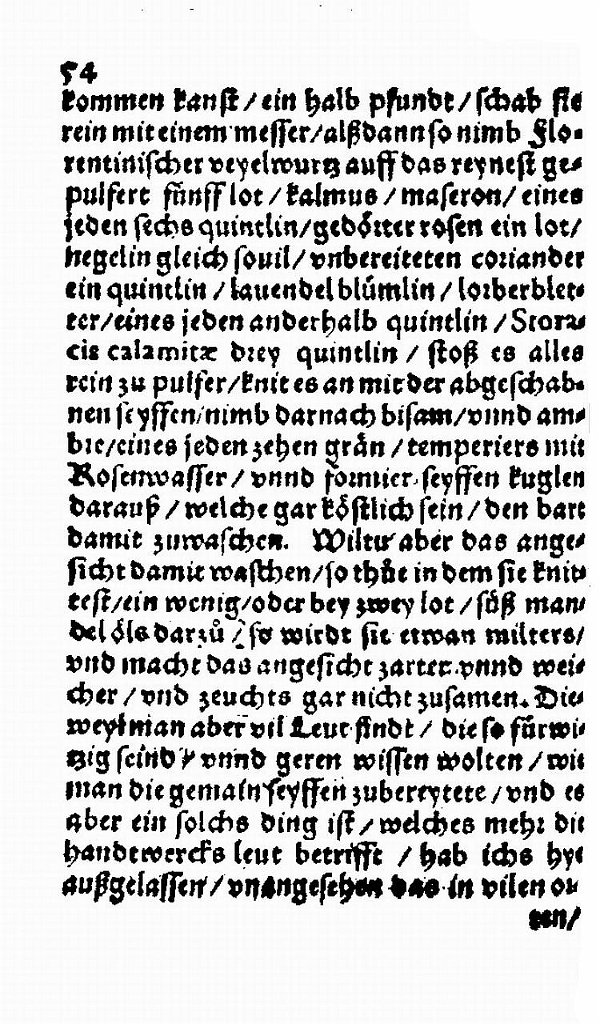 54
kommen kanſt / ein halb pfundt / ſchab ſie
rein mit einem meſſer/alßdann ſo nimb Flo⸗
rentiniſcher veyelwurtz auff das reyneſt ge⸗
pulfert fünff lot / kalmus / maſeron/ eines
jeden ſechs quintlin/gedörter roſen ein lot/
negelin gleich ſouil/ vnbereiteten coriander
ein quintlin / lauendel blümlin / lorberblet⸗
ter/eines jeden anderhalb quintlin / Stora⸗
cis calamitæ drey quintlin / ſtoß es alles
rein zu pulfer/knit es an mit der abgeſchab⸗
nen ſeyffen/nimb darnach biſam/vnnd am⸗
bre/eines jeden zehen grän / temperiers mit
Roſenwaſſer / vnnd formier ſeyffen kuglen
darauß / welche gar köſtlich ſein / den bart
damit zuwaſchen. Wiltu aber das ange⸗
ſicht damit waſchen/ſo thůe in dem ſie knit⸗
teſt/ein wenig/oder bey zwey lot / ſüß man⸗
del öls darzů / ſo wirdt ſie etwan milters/
vnd macht das angeſicht zarter vnnd wei⸗
cher / vnd zeuchts gar nicht zuſamen. Die⸗
weyl man aber vil Leut findt / die ſo fürwi⸗
tzig ſeind / vnnd geren wiſſen wolten / wie
man die gemain ſeyffen zubereytete / vnd es
aber ein ſolchs ding iſt / welches mehr die
handtwercks leut betrifft / hab ichs hye
außgelaſſen / vnangeſehen das in vilen or⸗
ten/